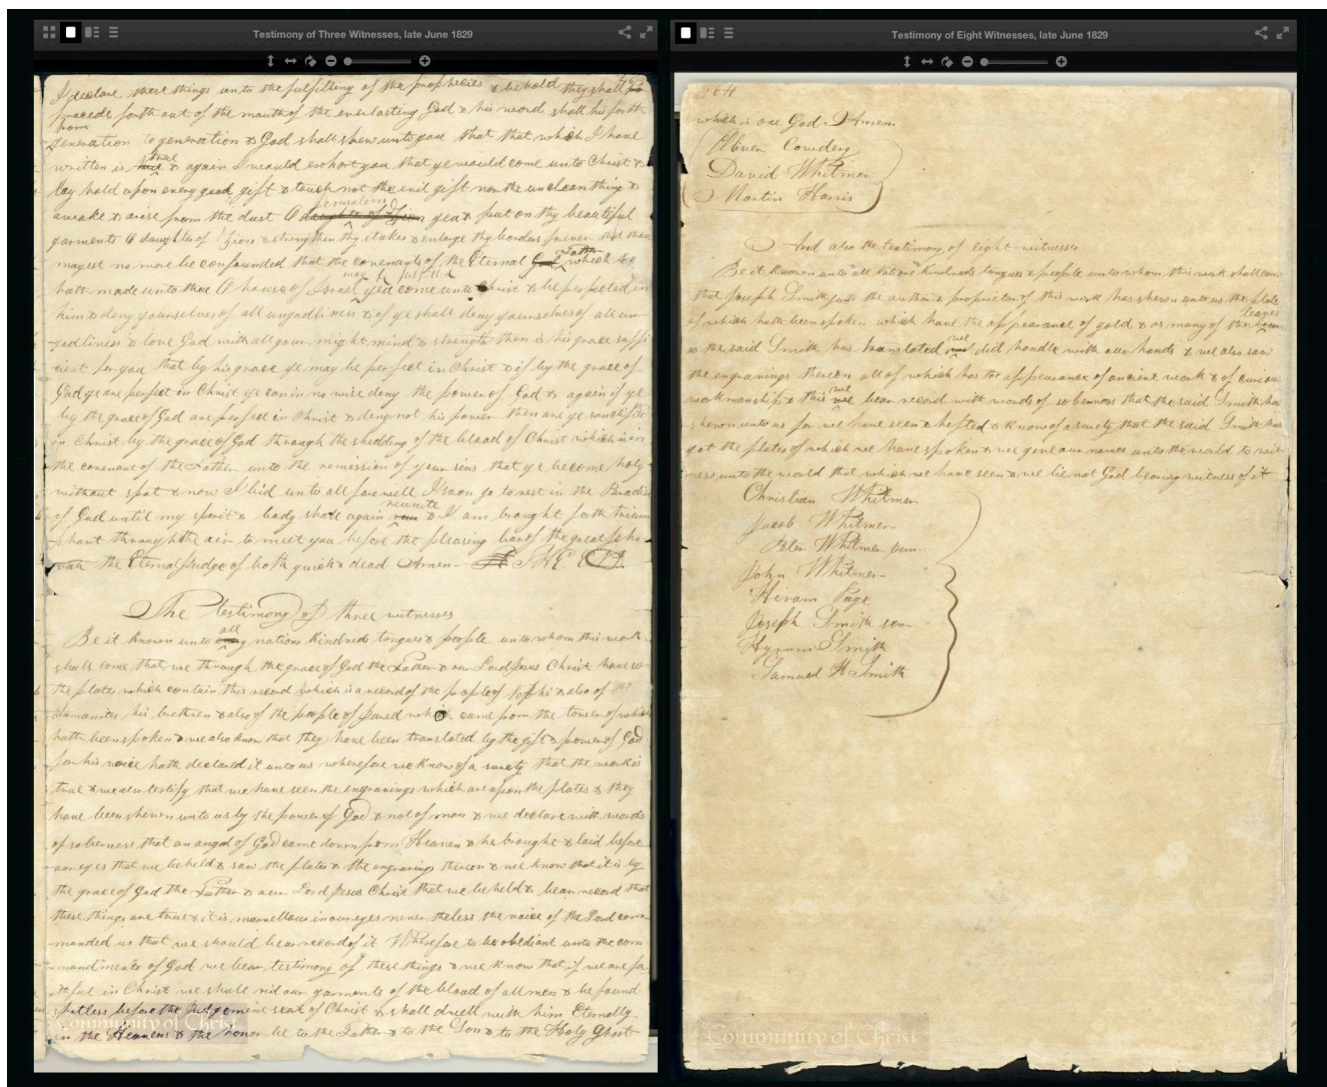 Testimony of Three Witnesses, late June 1829
463
I declare these things unto the fulfilling of the prophecies & behold they shall
procede forth out of the mouth of the everlasting God & his word shall his forth
from
generation to generation & God shall shew unto you that that which I have
true
written is & again I would exhort you that ye would come unto Christ &
lay hold upon every good gift & touch not the evil gift nor the unclean thing &
Jerusalem
awake & arise from the dust O daughter of Zion yea & put on thy beautiful
garments O daughter of Zion & strengthen thy stakes & enlarge thy borders forever that thou
Father
mayest no more be confounded that the covenants of the Eternal God which he
may be fulfilled
hath made unto thee O house of Israel yea come unto Christ & be perfected in
him & deny yourselves of all ungodliness & if ye shall deny yourselves of all un-
godliness & love God with all your might mind & strength then is his grace suffi
cient for you that by his grace ye may be perfect in Christ & if by the grace of
God ye are perfect in Christ ye can in no wise deny the power of God & again if ye
by the grace of God are perfect in Christ & deny not his power then are ye sanctified
in Christ by the grace of God through the shedding of the blood of Christ which is in
the covenant of the Father unto the remission of your sins that ye become holy
without spot & now I bid unto all farewell I soon go to rest in the Paradise
reunite
of God until my spirit & body shall again & I am brought forth trium
-phant through the air to meet you before the pleasing bar of the great Jeho
-vah the Eternal Judge of both quick & dead Amen-
The testimony of three witnesses
all
Be it known unto nations kindreds tongues & people unto whom this work
shall come that we through the grace of God the Father & our Lord Jesus Christ have seen
the plates which contain this record which is a record of the people of Nephi & also of the
Lamanites his brethren & also of the people of Jared which came from the tower of which
hath been spoken & we also know that they have been translated by the gift & power of God
for his voice hath declared it unto us wherefore we know of a surety that the work is
true & we also testify that we have seen the engravings which are upon the plates & they
have been shewn unto us by the power of God & not of man & we declare with words
of soberness that an angel of God came down from Heaven & he brought & laid before
our eyes that we beheld & saw the plates & the engravings thereon & we know that it is by
the grace of God the Father & our Lord Jesus Christ that we beheld & bear record that
these things are true & it is marvellous in our eyes nevertheless the voice of the Lord com-
manded us that we should bear record of it Wherefore to be obediant unto the com
-mandments of God we bear testimony of these things & we know that if we are fa
-ithful in Christ we shall rid our garments of the blood of all men & be found
spotless before the judgement seat of Christ & shall dwell with him Eternally
in the Heavens & the honor be to the Father & to the Son & to the Holy Ghost
Community of Christ
Testimony of Eight Witnesses, late June 1829
264
which is one God. Amen.
Oliver Cowdery
David Whitmer
Martin Harris
And also the testimony of eight witnesses
Be it known unto all nations kindreds tongues & people unto whom this work shall come
that Joseph Smith jun the author & proprietor of this work has shewn unto us the plates
leaves
of which hath been spoken which have the appearance of gold & as many of the
we
as the said Smith has translated did handle with our hands & we also saw
the engravings thereon all of which has the appearance of ancient work & of curious
we
workmanship & this we bear record with words of soberness that the said Smith has
shewn unto us for we have seen & hefted & know of a surety that the said Smith has
got the plates of which we have spoken & we give our names unto the world to wit-
ness unto the world that which we have seen & we lie not God bearing witness of it
Christian Whitmer
Jacob Whitmer
Peter Whitmer jun
John Whitmer
Hiram Page
Joseph Smith sen
Hyrum Smith
Samuel H Smith
Community of Christ